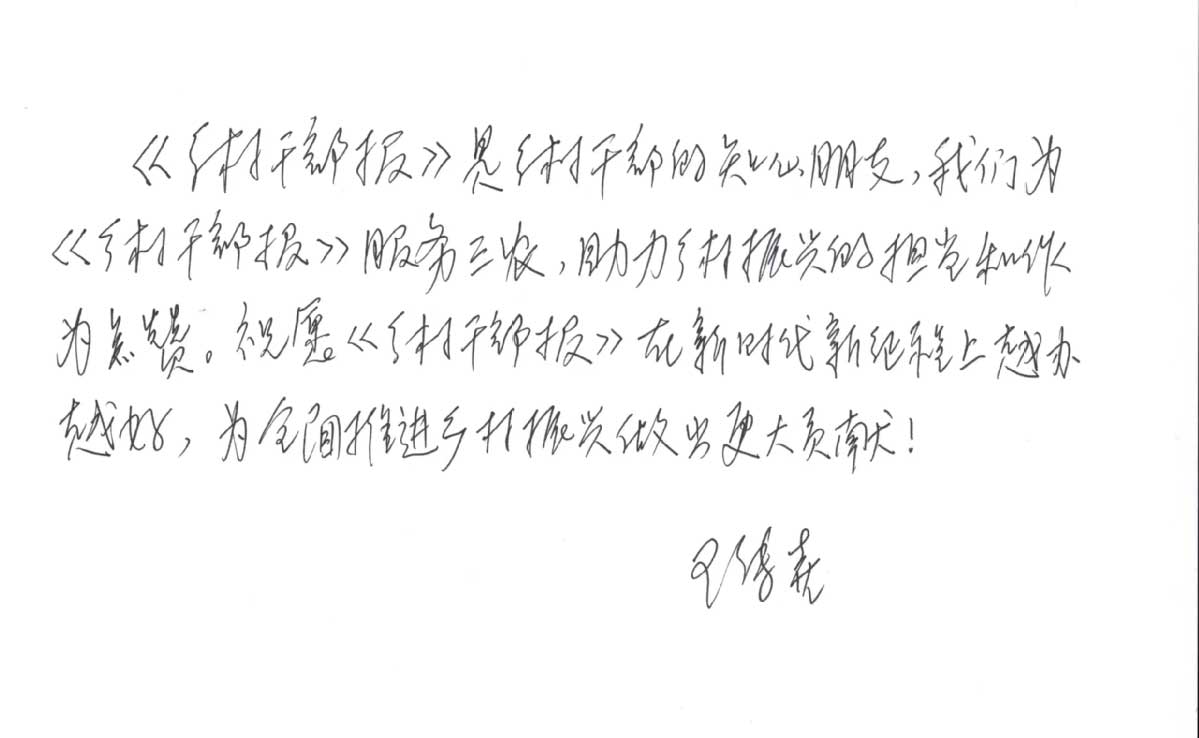 《乡村干部报》是乡村干部的知心朋友,我们为
《乡村干部报》服务三农,助力乡村振兴的担当和作
为点赞。祝愿《乡村干部报》在新时代新征程上越办
越好,为全面推进乡村振兴做出更大贡献!
王